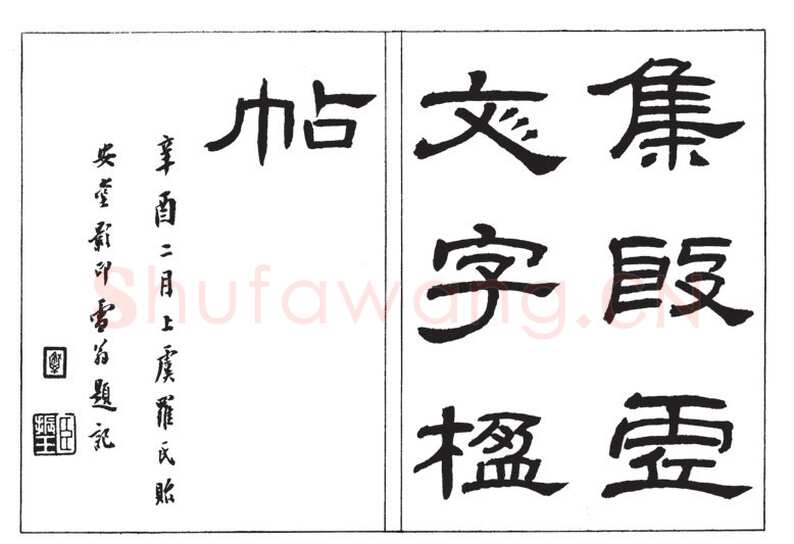 集殷虛
彣字楹
帖
辛酉二月上虞羅氏貽
安堂影印雪翁題記
Shufawang.CN